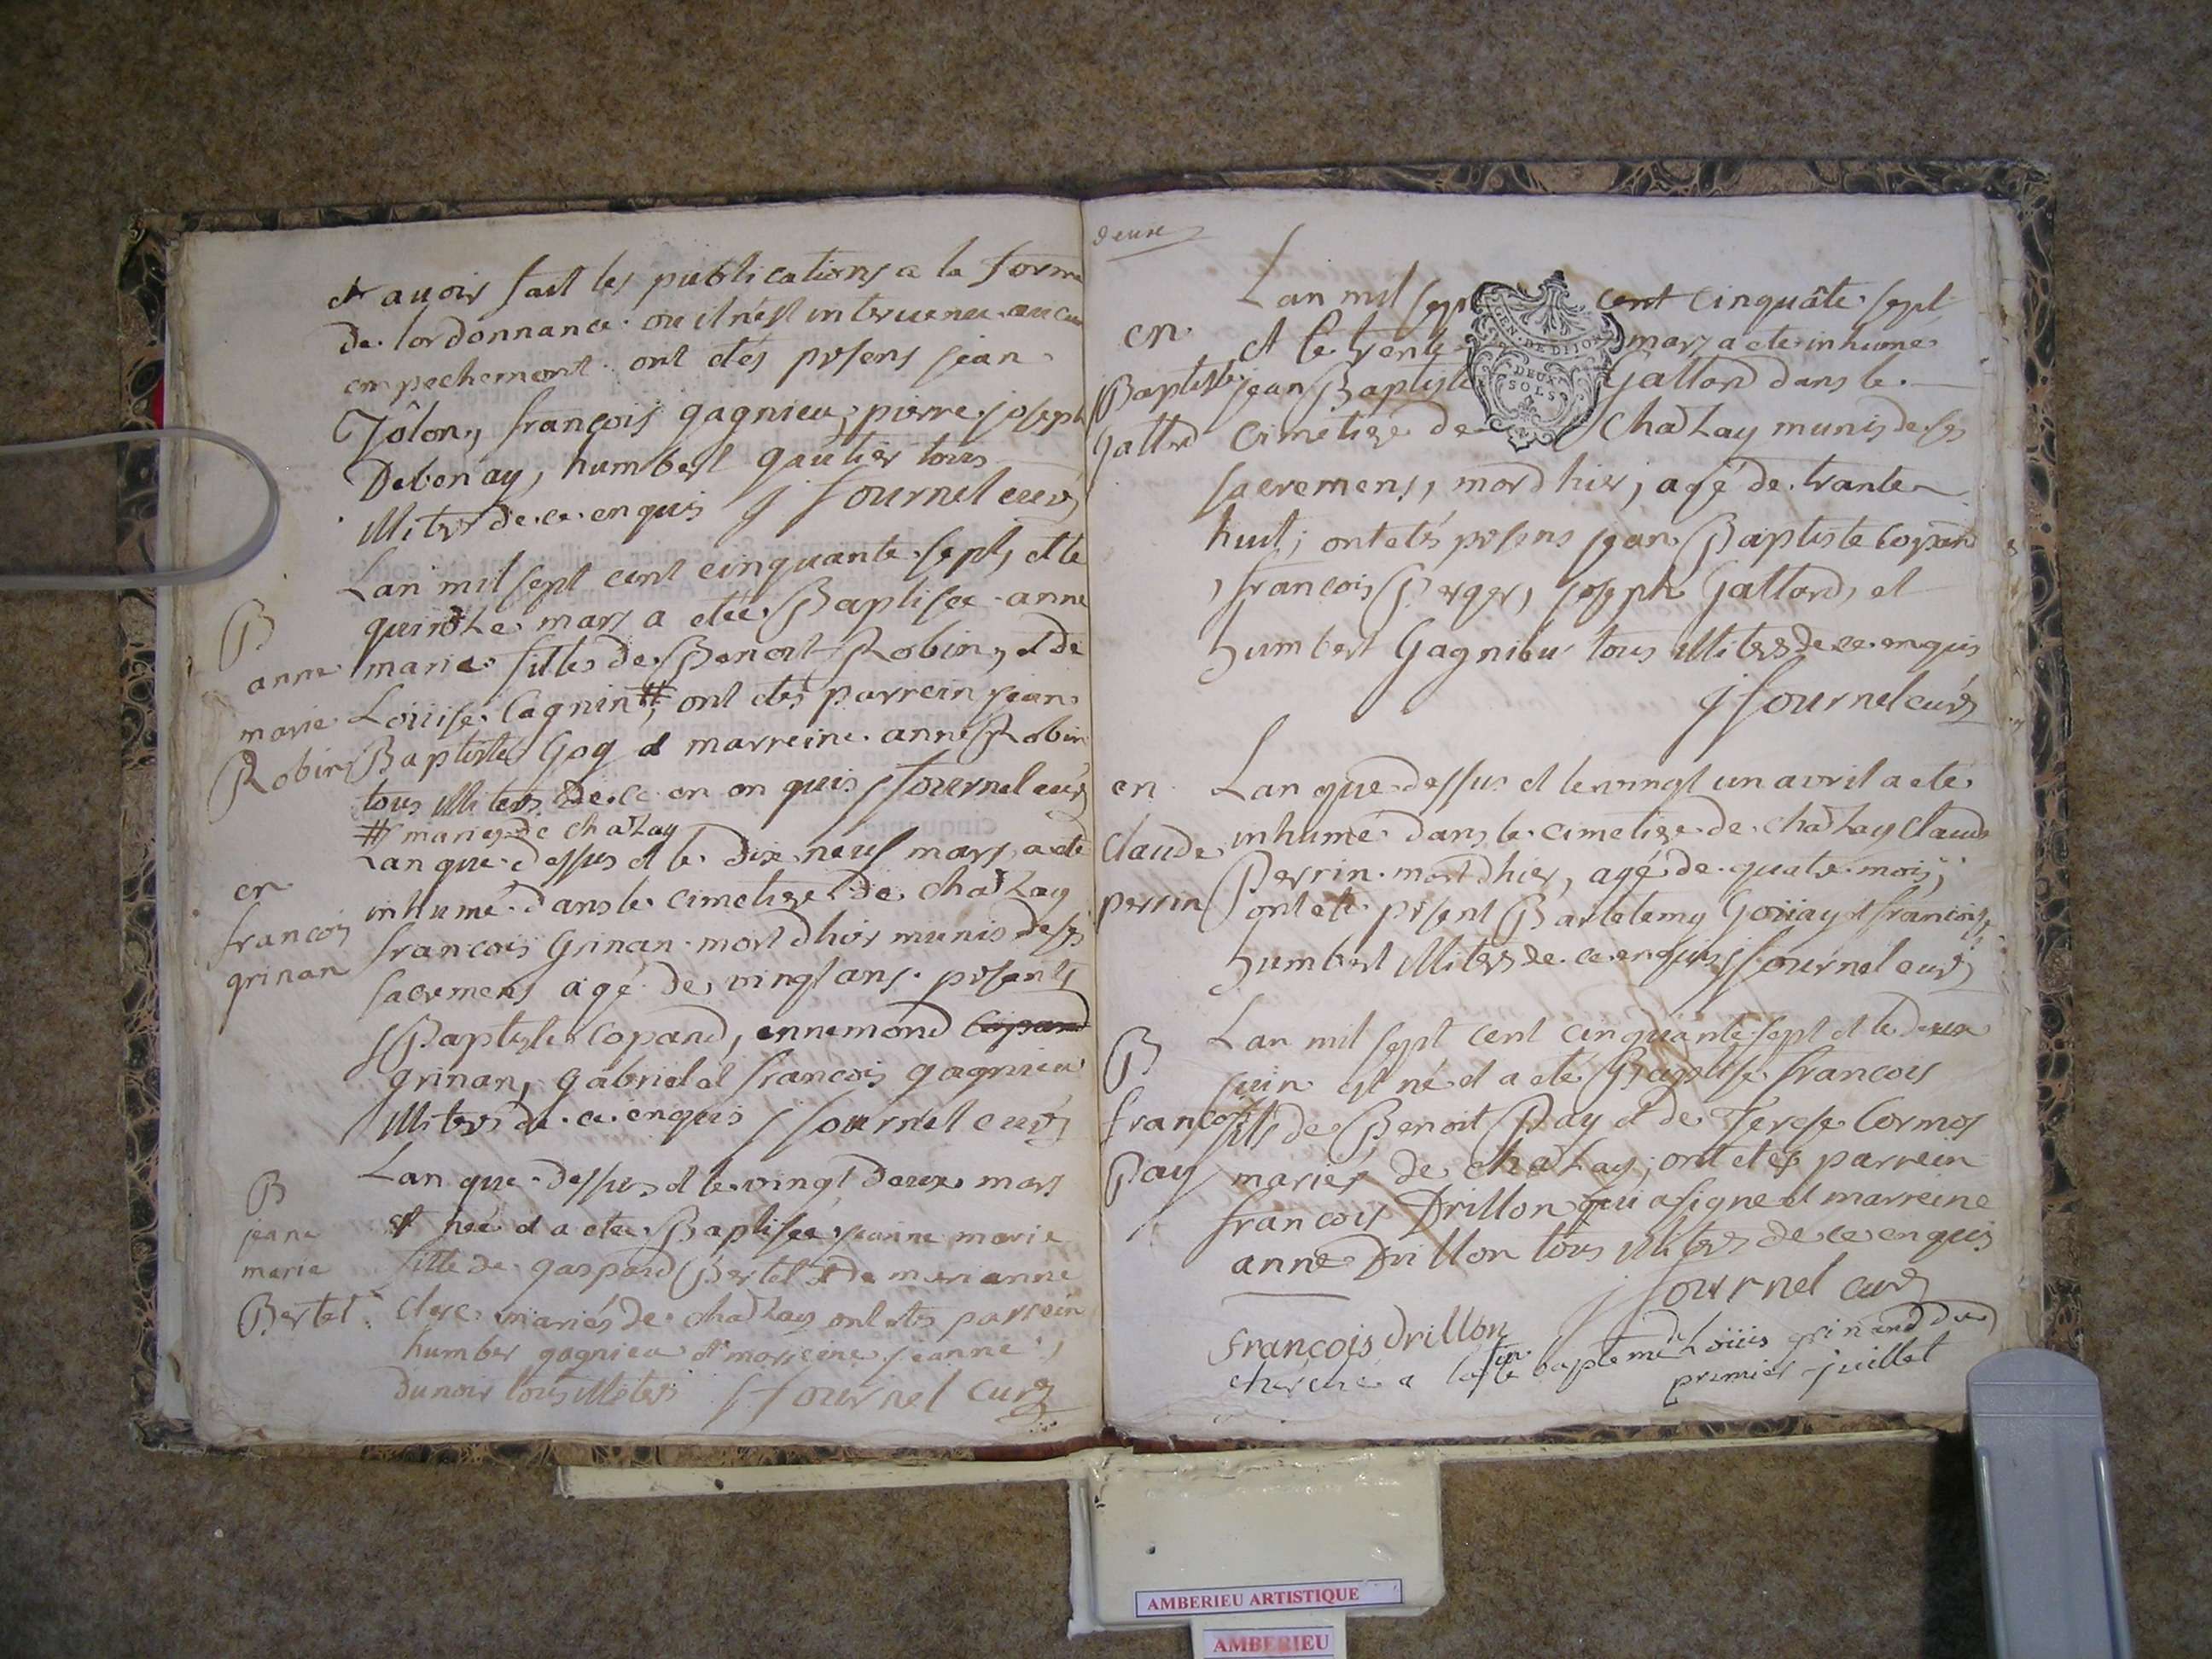 et avoir fait les publications a la forme
de lordonnance ou il nést intervenu aucun
empechement ont étés présens jean
Jôlon, françois gagnieu, pierre joseph
Debenay, humbert gautier tous
illitrés de ce enquis j fournel curé
B
anne
marie
Robin
Lan mil sept cent cinquante sept, et le
quinze mars a etée Baptisée anne
marie fille de Benoit Robin, et de
Loüise Cagnin #, ont étés parrein jean
Baptiste Goy et marreine anne Robin
tous illitrés de ce en quis j fournel curé
# mariés de chazay
en
francois
grinan
Lan que dessus et le dix neuf mars a eté
inhumé dans le cimetiere de chazay
francois Grinan mort dhier munis de ses
sacremens agé de vingt ans présents
Baptiste Copand, ennemond Copand
grinan, gabriel et francois gagnieu
illitrés de ce enquis j fournel curé
B
jeane
marie
Bertet
Lan que dessus et le vingt deux mars
est née et a etée Baptisée jeanne marie
fille de gaspard Bertet et de marianne
clerc mariés de chazay ont étés parrein
humber gagnieu et marreine jeanne
dunoir tous illitrés j fournel curé
deuxe
en
Baptiste
Gallard
Lan mil sept cent cinquâte sept
et le trente mars a eté inhumé
jean Baptiste Gallard dans le
cimetiere de chazay munis de ses
sacremens, mord hier, agé de trante
huit, ont étés présens jean Baptiste Copand
, francois Berger, joseph Gallard, et
humbert Gagnieu tous illitrés de ce enquis
j fournel curé
GEN. DE DIJON
DEUX
SOLS
en
claude
perrin
Lan que dessus et le vingt un avril a eté
inhumé dans le cimetiere de chazay Claude
Perrin mort dhier, agé de quatre mois,
ont été présent Bartelemy Goüiay et francoise
humbert illitrés de ce enquis j fournel curé
B
francois
Pay
Lan mil sept cent cinquante sept et le deux
juin est né et a eté Baptisé francois
fils de Benoit Pay et de Terese Cormos
mariés de chazay, ont étés parrein
francois Drillon qui a signé et marreine
anne Drillon tous illitrés de ce enquis
j fournel curé
François drillon
cherché a la fin le baptême de Loüis grinand du
premier juillet
AMBERIEU ARTISTIQUE
AMBERIEU